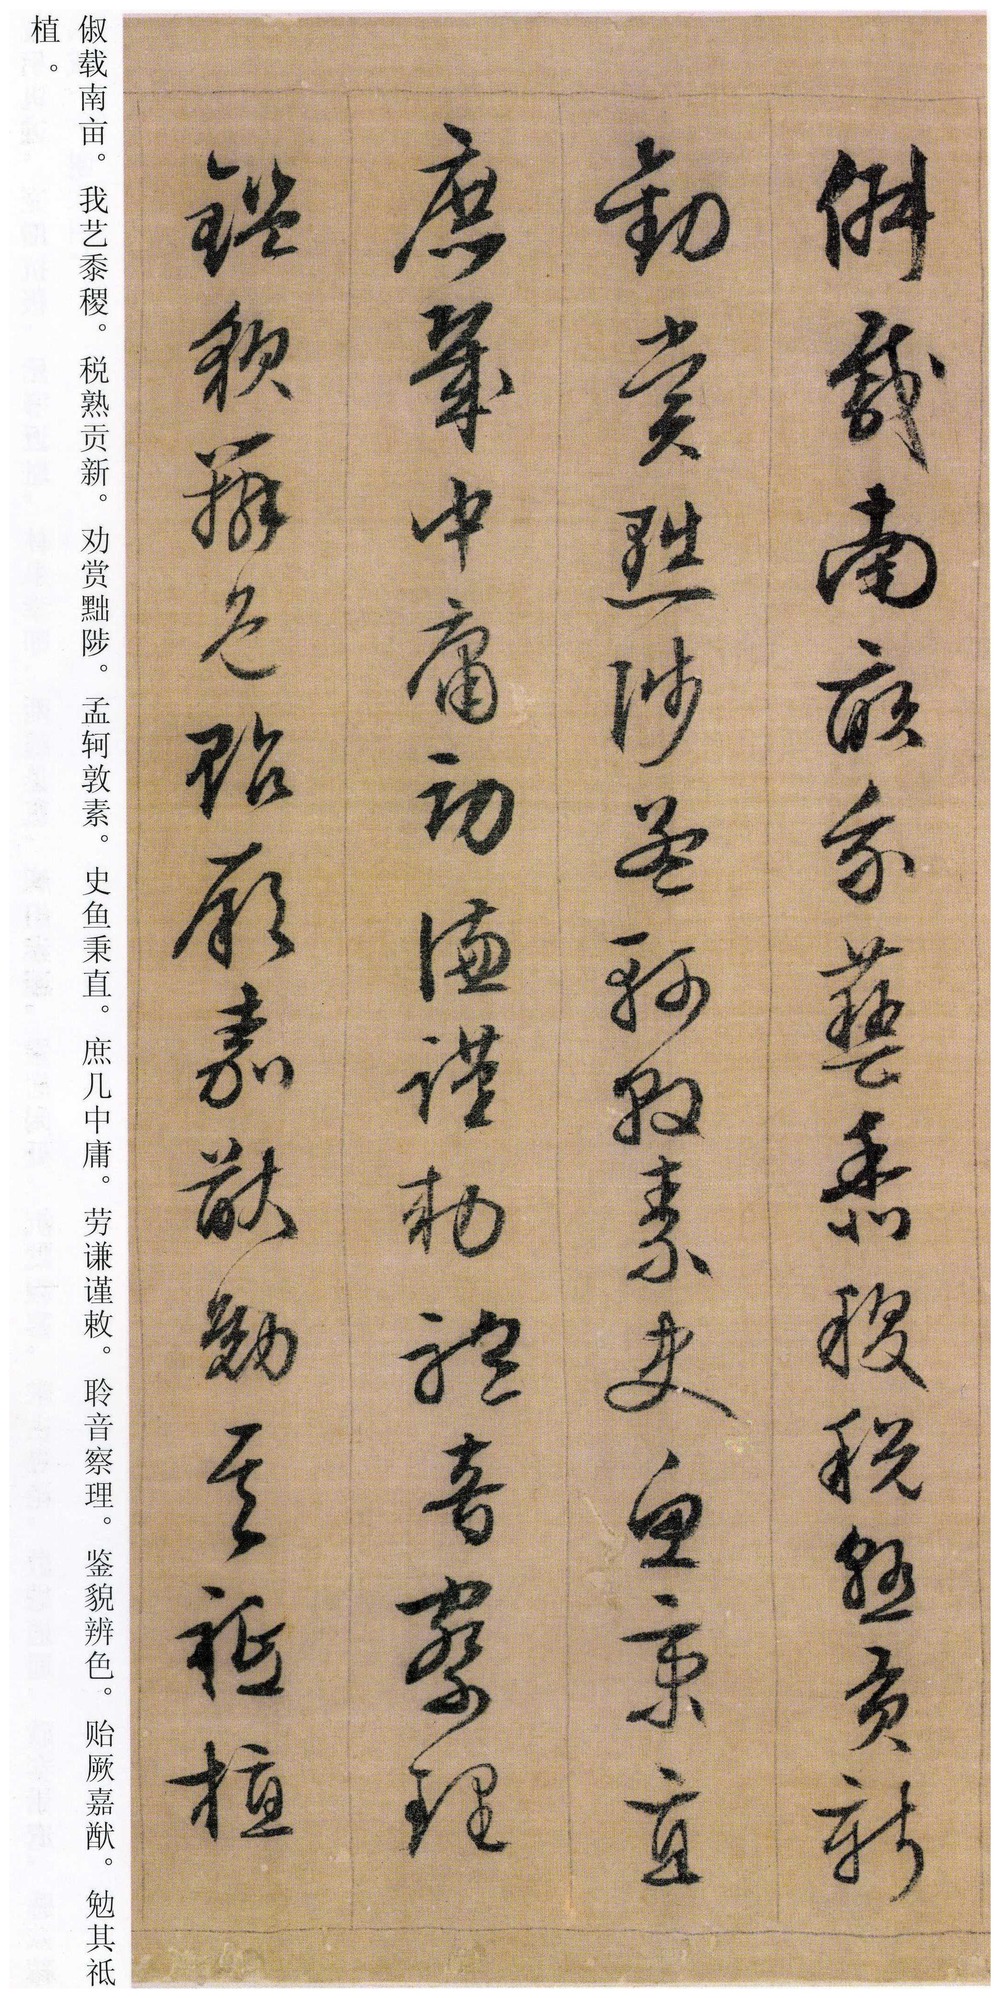 俶載南畝我藝黍稷稅熟貢新
勸賞黜陟孟軻敦素史魚秉直
庶幾中庸勞謙謹勑聆音察理
鑑貌辨色貽厥嘉猷勉其祗植
俶载南亩。我艺黍稷。税熟贡新。劝赏黜陟。孟轲敦素。史鱼秉直。庶几中庸。劳谦谨敕。聆音察理。鉴貌辨色。贻厥嘉猷。勉其祗
植。